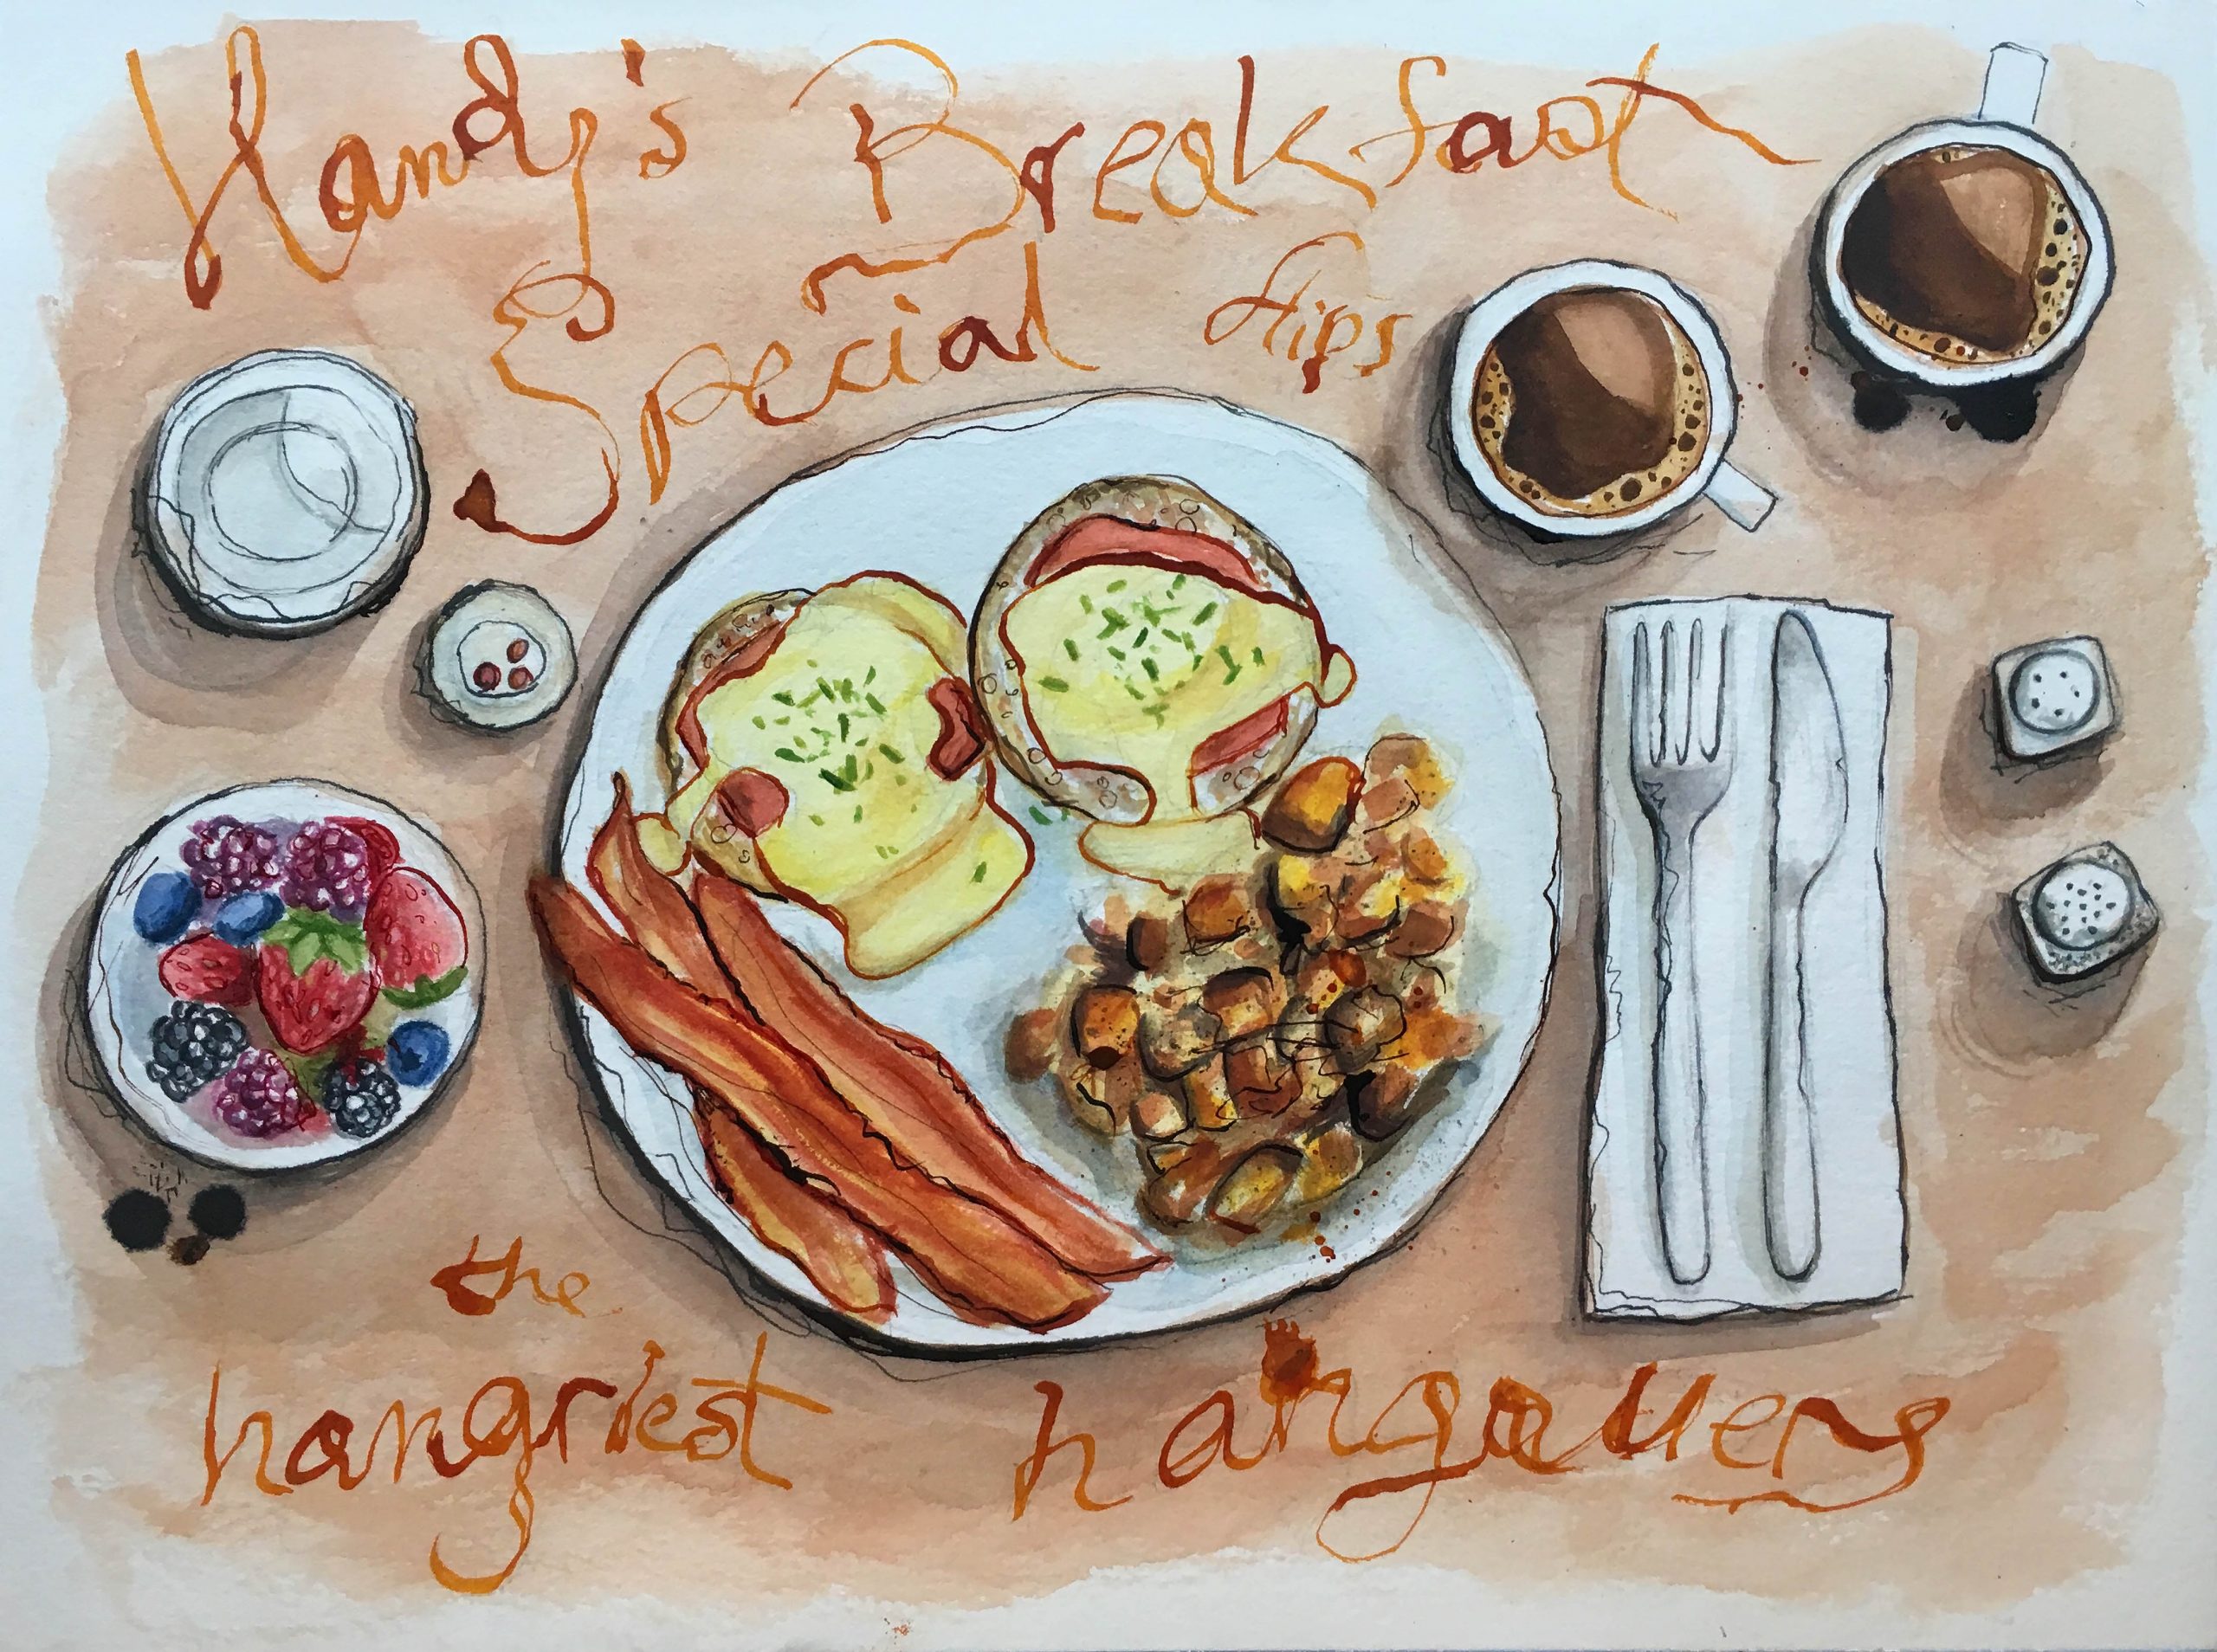 Handy's Breakfast
Special flips
the
hangriest hangovers